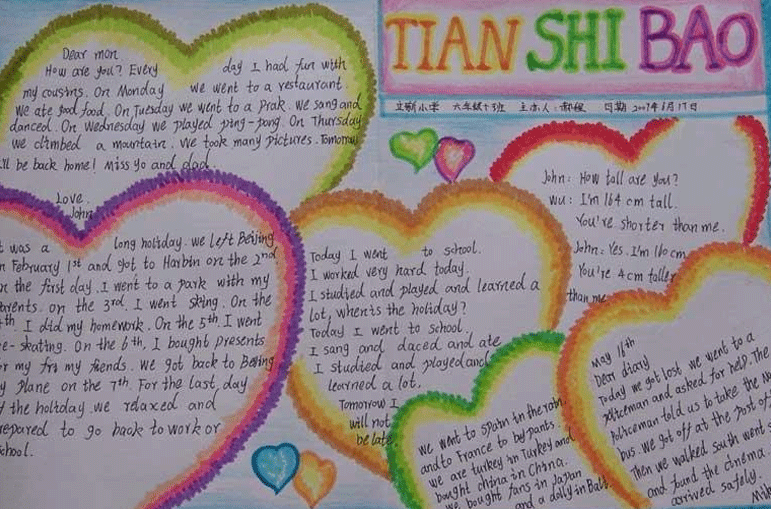 TIAN SHI BAO
立新小学 六年级十班 主办人:郝程 日期 2009年6月17日
Dear mon
How are you? Every day I had fun with
my cousins. On Monday we went to a restaurant.
We ate good food. On Tuesday we went to a prak. We sang and
danced. On Wednesday we played ping-pong. On Thursday
we climbed a mountain. We took many pictures. Tomorrow
I'll be back home! Miss yo and dad.
Love.
John
John: How tall are you?
wu: I'm 164 cm tall.
You're shorter than me.
John: Yes. I'm 160 cm
You're 4cm taller
than me
t was a long holiday. we left Beijing
n February 1st and got to Harbin on the 2nd
n the first day. I went to a park with my
arents. on the 3rd. I went skiing. On the
th. I did my homework. On the 5th. I went
e-skating. On the 6th, I bought presents
or my frs my friends. we got back to Beijing
y plane on the 7th. For the last day
f the holiday we relaxed and
repared to go back to work or
chool.
Today I went to school.
I worked very hard today.
I studied and played and learned a
lot, when's the holiday?
Today I went to school
I sang and daced and ate
I studied and played and
learned a lot.
Tomorrow I
will not
be late.
we went to Spain in the rain
and to France to buy pants.
we are turkey in Turkey and
bought china in China.
we bought fans in Japan
and a dolly in Bali.
May 16th
Dear diary
Today we got lost. we went to a
policeman and asked for help. The
policeman told us to take the No
bus. We got off at the post of
Then we walked south went s
and found the cinema.
arrived safely.
Mike